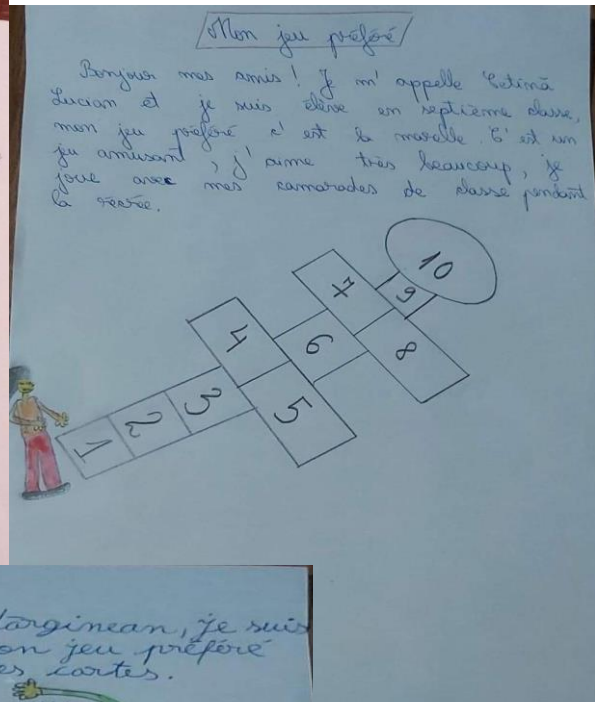 Mon jeu préféré
Bonjour mes amis ! Je m' appelle Cetină
Lucian et je suis élève en septième classe,
mon jeu préféré c' est la marelle. C' est un
jeu amusant, j' aime très beaucoup, je
joue avec mes camarades de classe pendant
la récrée.
10
7
9
4
6
8
3
5
2
1
Mărginean, je suis
on jeu préféré
es cartes.